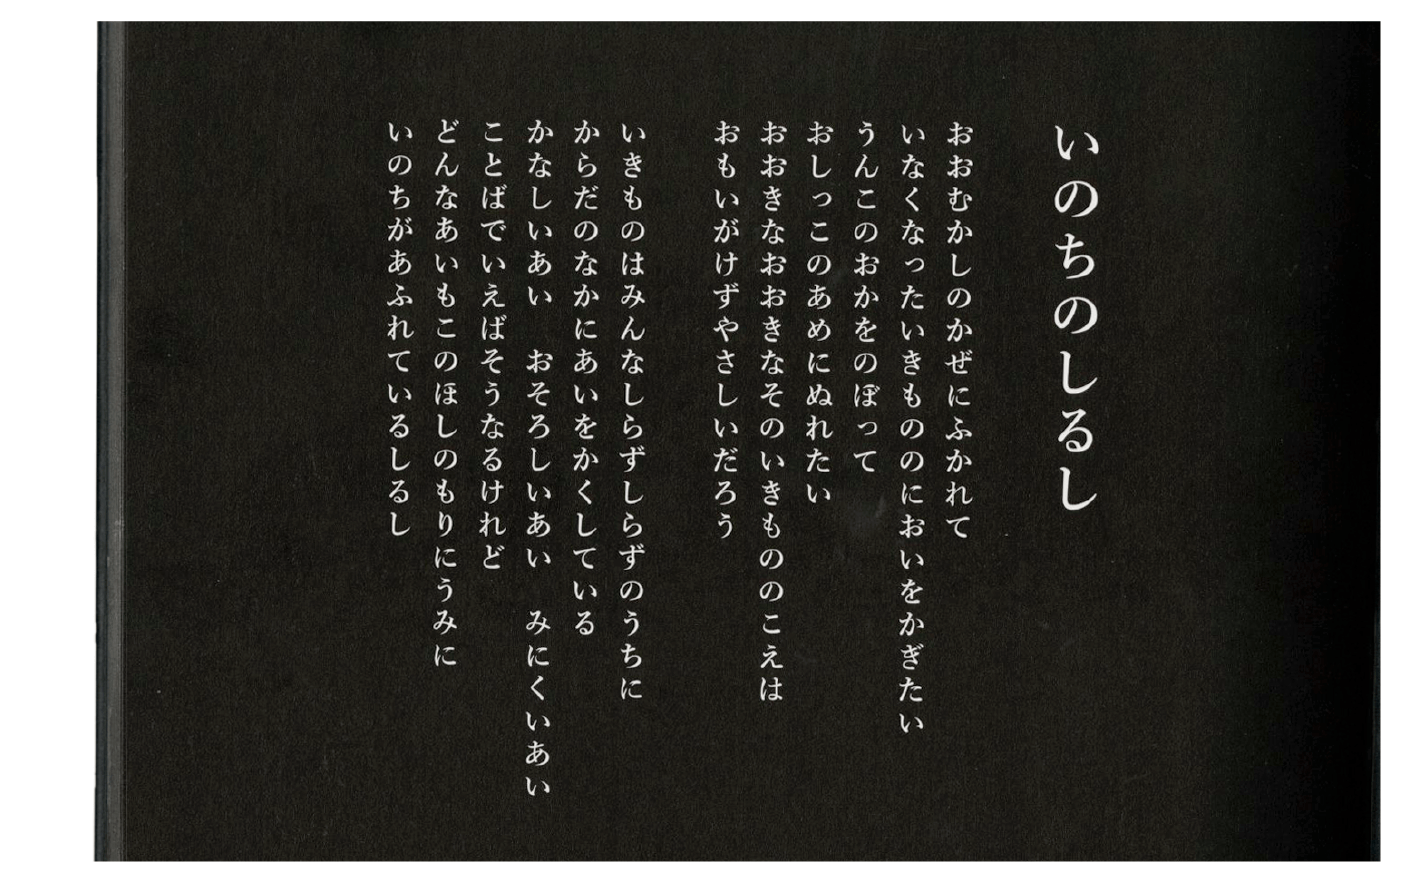 いのちのしるし
おおむかしのかぜにふかれて
いなくなったいきもののにおいをかぎたい
うんこのおかをのぼって
おしっこのあめにぬれたい
おおきなおおきなそのいきもののこえは
おもいがけずやさしいだろう
いきものはみんなしらずしらずのうちに
からだのなかにあいをかくしている
かなしいあい　おそろしいあい　みにくいあい
ことばでいえばそうなるけれど
どんなあいもこのほしのもりにうみに
いのちがあふれているしるし